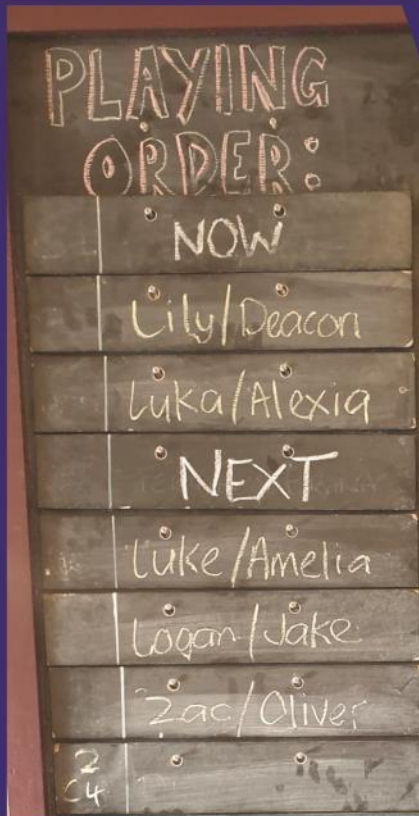 PLAYING
ORDER:
NOW
Lily/Deacon
Luka/Alexia
NEXT
Luke/Amelia
Logan/Jake
Zac/Oliver
2
C4